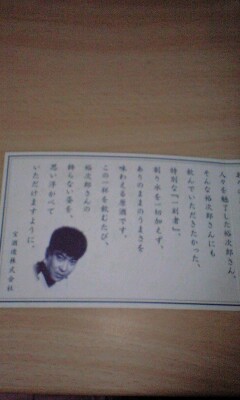 人々を魅了した裕次郎さん。
そんな裕次郎さんにも
飲んでいただきたかった、
特別な『一刻者』。
割り水を一切加えず、
ありのままのうまさを
味わえる原酒です。
この一杯を飲むたび、
裕次郎さんの
飾らない姿を、
思い浮かべて
いただけますように。
宝酒造株式会社